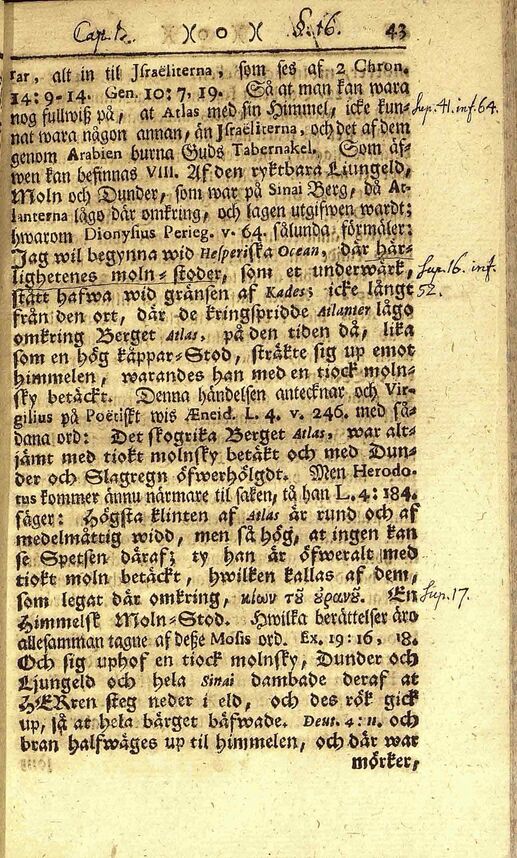 Cap. 1. )( o )( §. 16. 43
rar, alt in til Jsraëliterna, som ses af 2 Chron.
14: 9-14. Gen. 10: 7, 19. Så at man kan wara
nog fullwiß på, at Atlas med sin Himmel, icke kun-
Sup. 41. inf. 64.
nat wara någon annan, än Jsraëliterna, och det af dem
genom Arabien burna Guds Tabernakel. Som äf-
wen kan befinnas VIII. Af den ryktbara Ljungeld,
Moln och Dunder, som war på Sinai Berg, då At-
lanterna lågo där omkring, och lagen utgifwen wardt;
hwarom Dionysius Perieg. v. 64. sålunda förmäler:
Jag wil begynna wid Hesperiska Ocean, där här-
lighetenes moln-stoder, som et underwärk,
Sup. 16. inf.
stått hafwa wid gränsen af Kades; icke långt
52.
från den ort, där de kringspridde Atlanter lågo
omkring Berget Atlas, på den tiden då, lika
som en hög käppar-Stod, sträkte sig up emot
himmelen, warandes han med en tiock moln-
sky betäckt. Denna händelsen antecknar och Vir-
gilius på Poëtiskt wis Æneid. L. 4. v. 246. med så-
dana ord: Det skogrika Berget Atlas, war alt-
jämt med tiokt molnsky betäkt och med Dun-
der och Slagregn öfwerhölgdt. Men Herodo-
tus kommer ännu närmare til saken, tå han L. 4: 184.
säger: Högsta klinten af Atlas är rund och af
medelmåttig widd, men så hög, at ingen kan
se Spetsen däraf; ty han är öfweralt med
tiokt moln betäckt, hwilken kallas af dem,
som legat där omkring, κίων τȣ ȣρανȣ. En
Sup. 17.
Himmelsk Moln-Stod. Hwilka berättelser äro
allesamman tagne af deße Mosis ord. Ex. 19: 16, 18.
Och sig uphof en tiock molnsky, Dunder och
Ljungeld och hela Sinai dambade deraf at
HERren steg neder i eld, och des rök gick
up, så at hela bärget bäfwade. Deut. 4: 11. och
bran halfwäges up til himmelen, och där war
mörker,